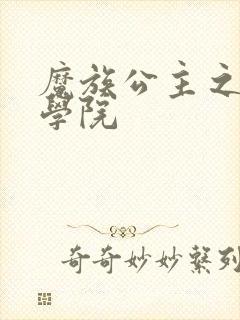 魔族公主之
學院
奇奇妙妙繫列